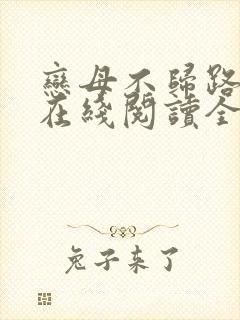 戀母不歸路
在綫閱讀全
兔子来了